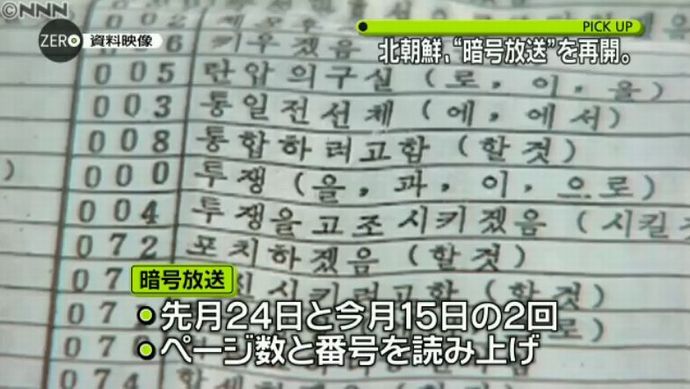 ©NNN
PICK UP
ZERO 資料映像
北朝鮮、“暗号放送”を再開。
6 키우겠음
005 탄압의구실 (로, 이, 을)
003 통일전선체 (에, 에서)
008 통합하려고함 (할것)
000 투쟁 (을, 과, 이, 으로)
004 투쟁을고조시키겠음 (시킬
072 포치하겠음 (할것)
07
시키려고함 (할것)
暗号放送
先月24日と今月15日の2回
ページ数と番号を読み上げ
074